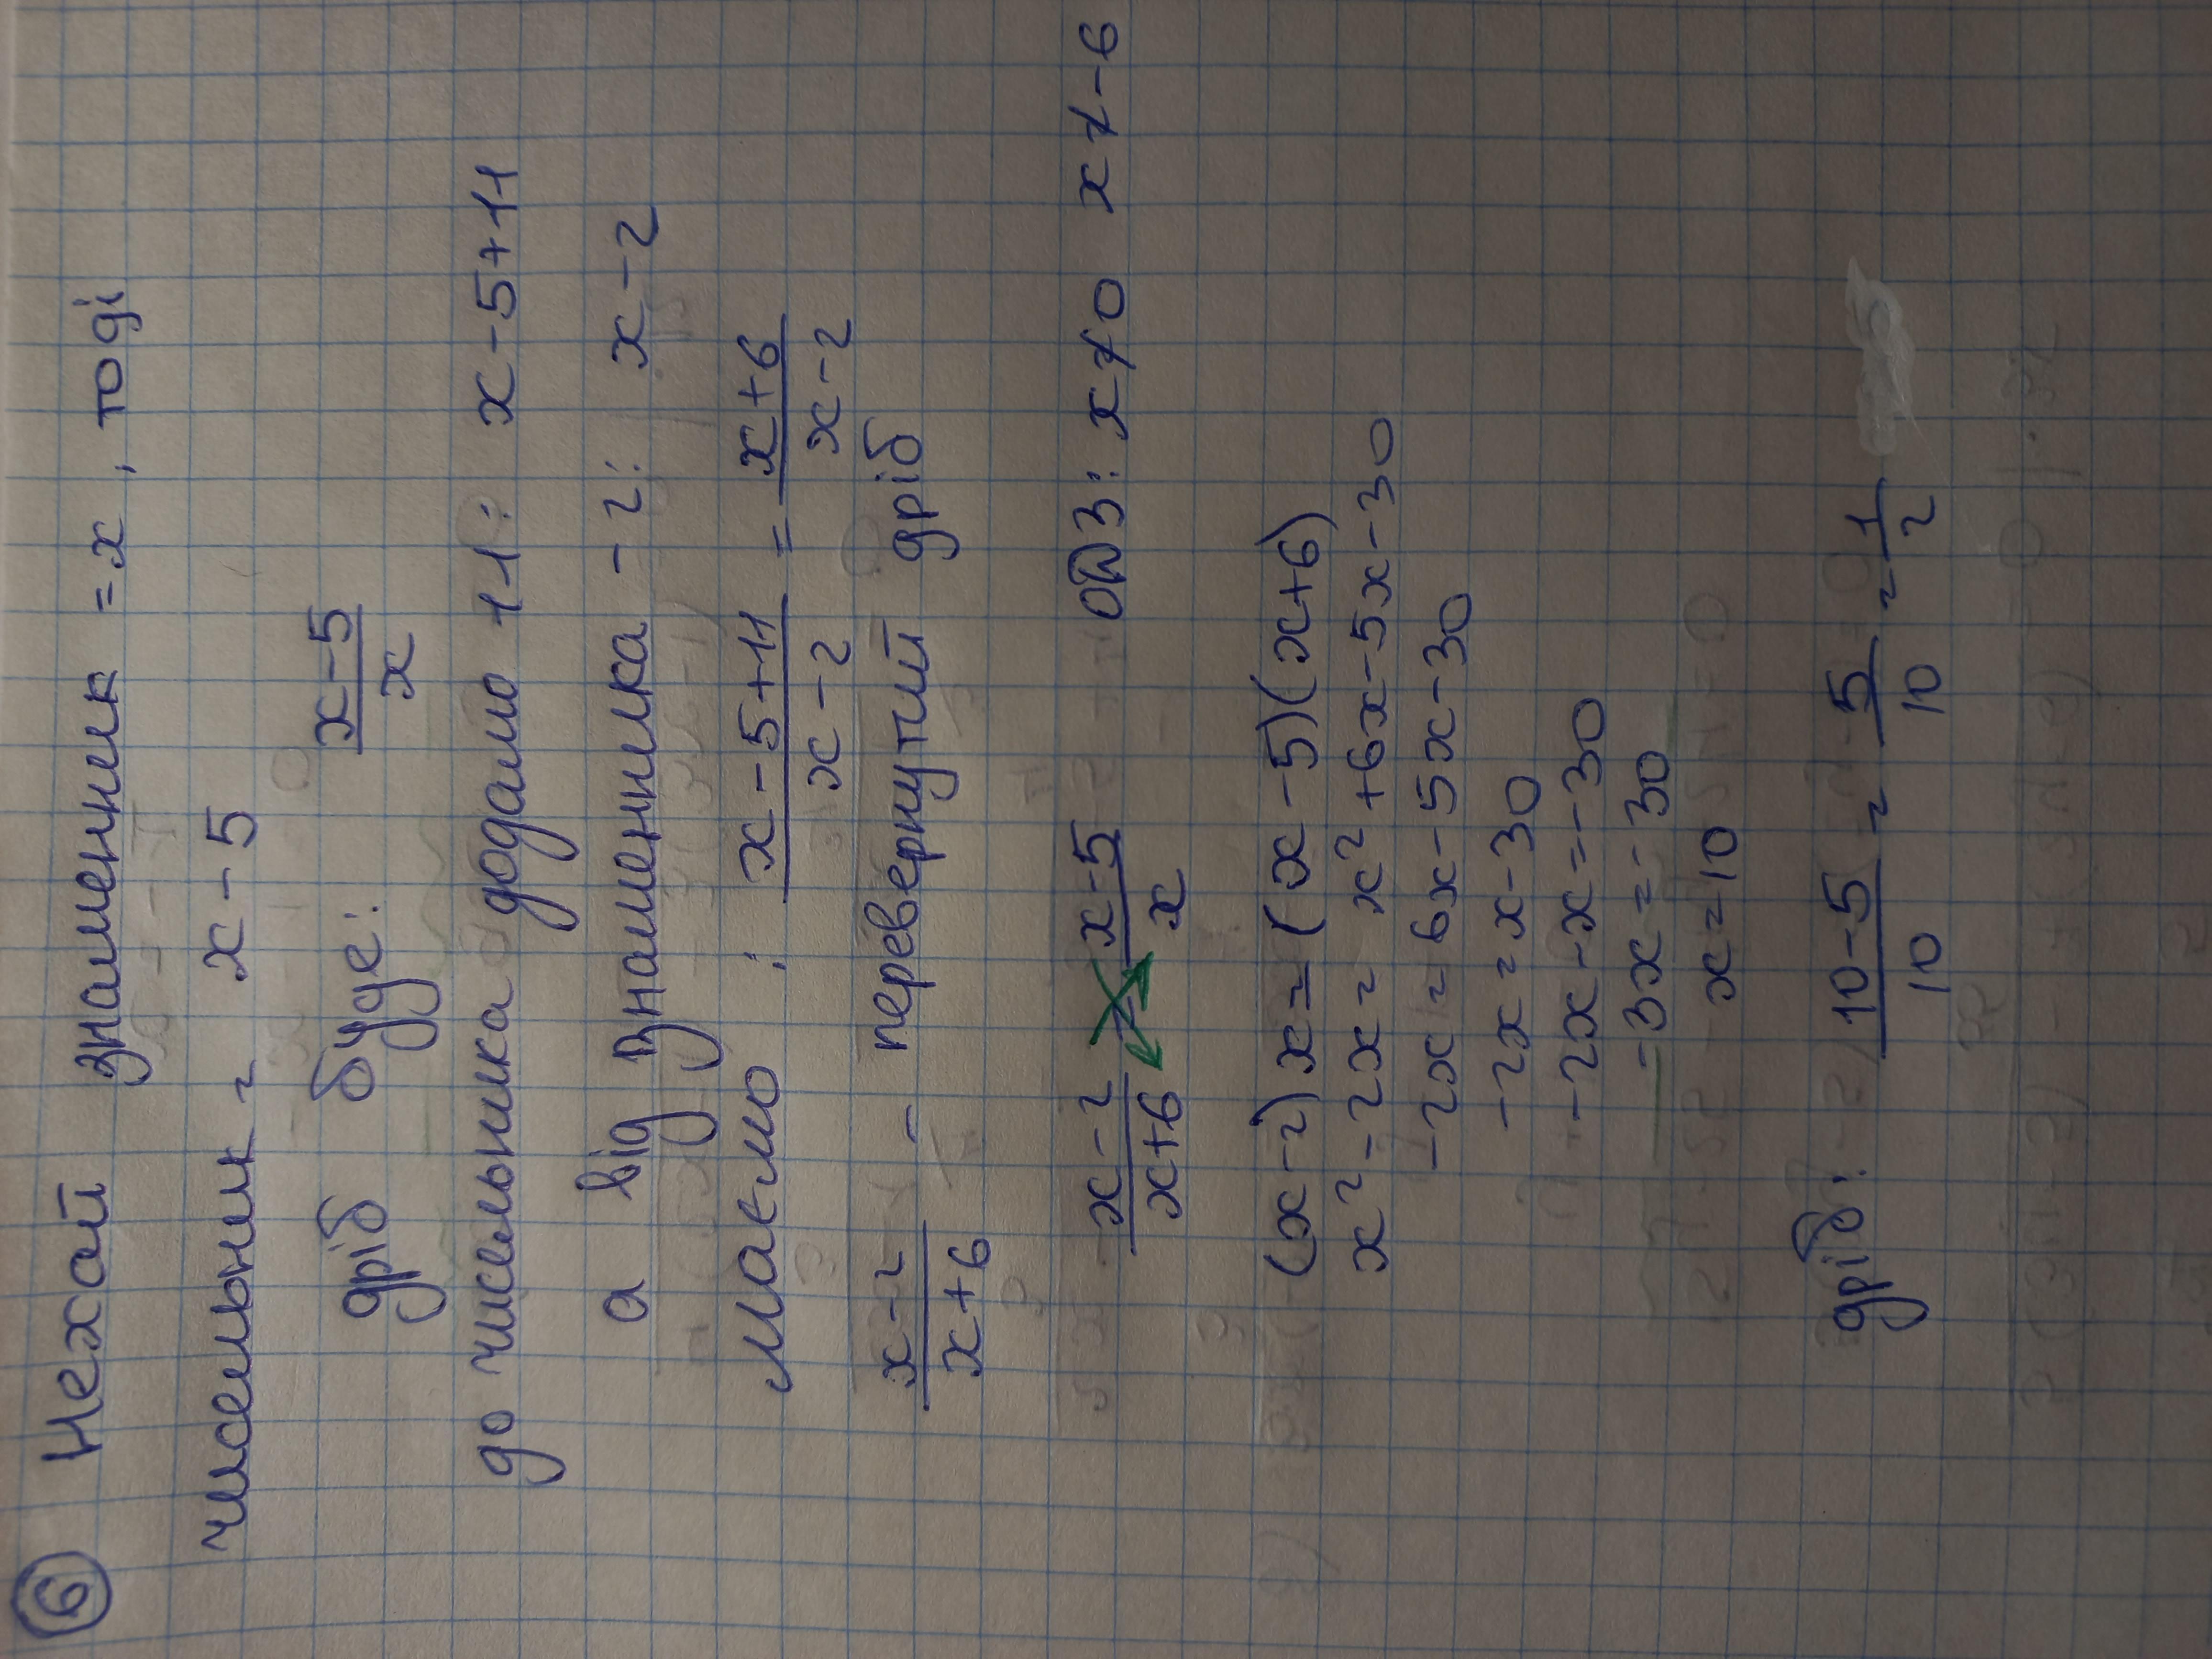 6 Нехай знаменник = x, тоді
чисельник = x - 5
дріб буде: (x-5)/x
до чисельника додамо 11: x - 5 + 11
а від знаменника - 2: x - 2
маємо: (x-5+11)/(x-2) = (x+6)/(x-2)
(x-2)/(x+6) - перевернутий дріб
(x-2)/(x+6) = (x-5)/x ОДЗ: x≠0 x≠-6
(x-2)x = (x-5)(x+6)
x² - 2x = x² + 6x - 5x - 30
-2x = 6x - 5x - 30
-2x = x - 30
-2x - x = -30
-3x = -30
x = 10
дріб: (10-5)/10 = 5/10 = 1/2